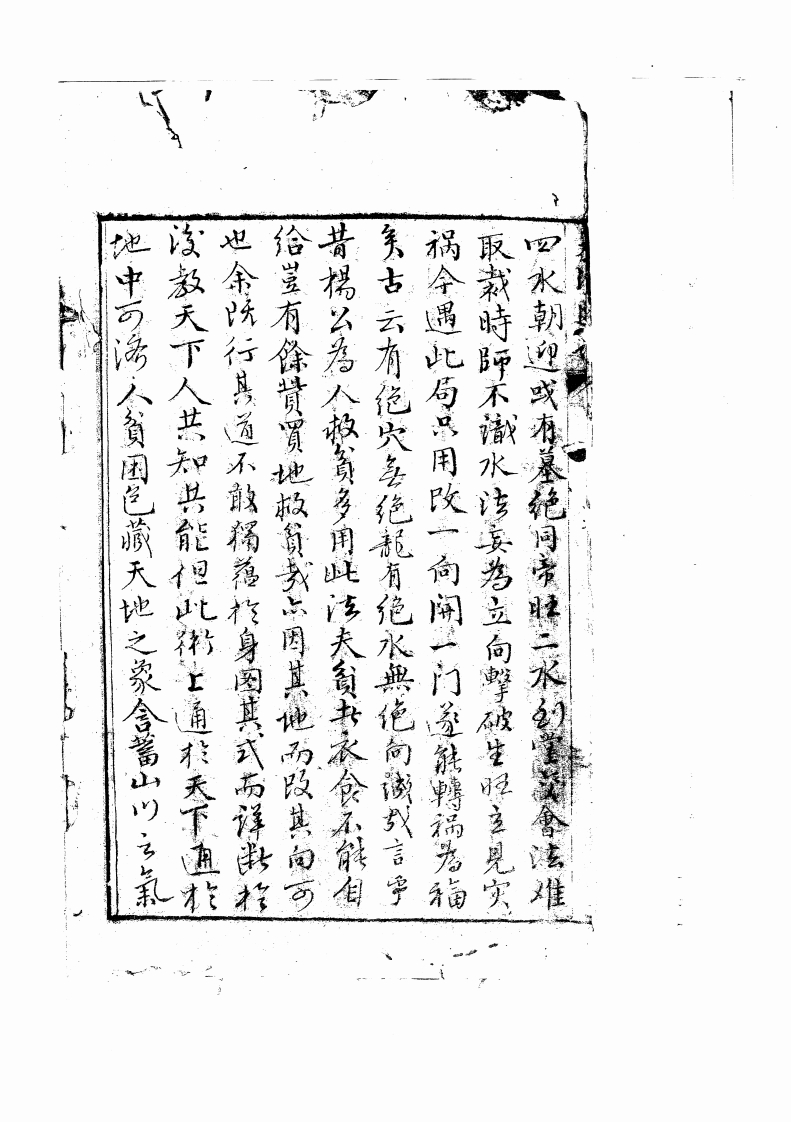 四水朝迎或有墓绝同帝旺二水到堂交會法难
取裁時師不識水法妄為立向擊破生旺立見灾
禍今遇此局只用改一向開一门遂能轉禍為福
矣古云有绝穴無绝龍有绝水無绝向誠哉言乎
昔楊公為人救貧多用此法夫貧者衣食不能自
給豈有餘貲買地救貧哉亦因其地而改其向可
也余既行其道不敢獨蕴於身圖其式而詳断於
後教天下人共知共能但此術上通於天下通於
地中可济人貧困包藏天地之象含蓄山川之氣